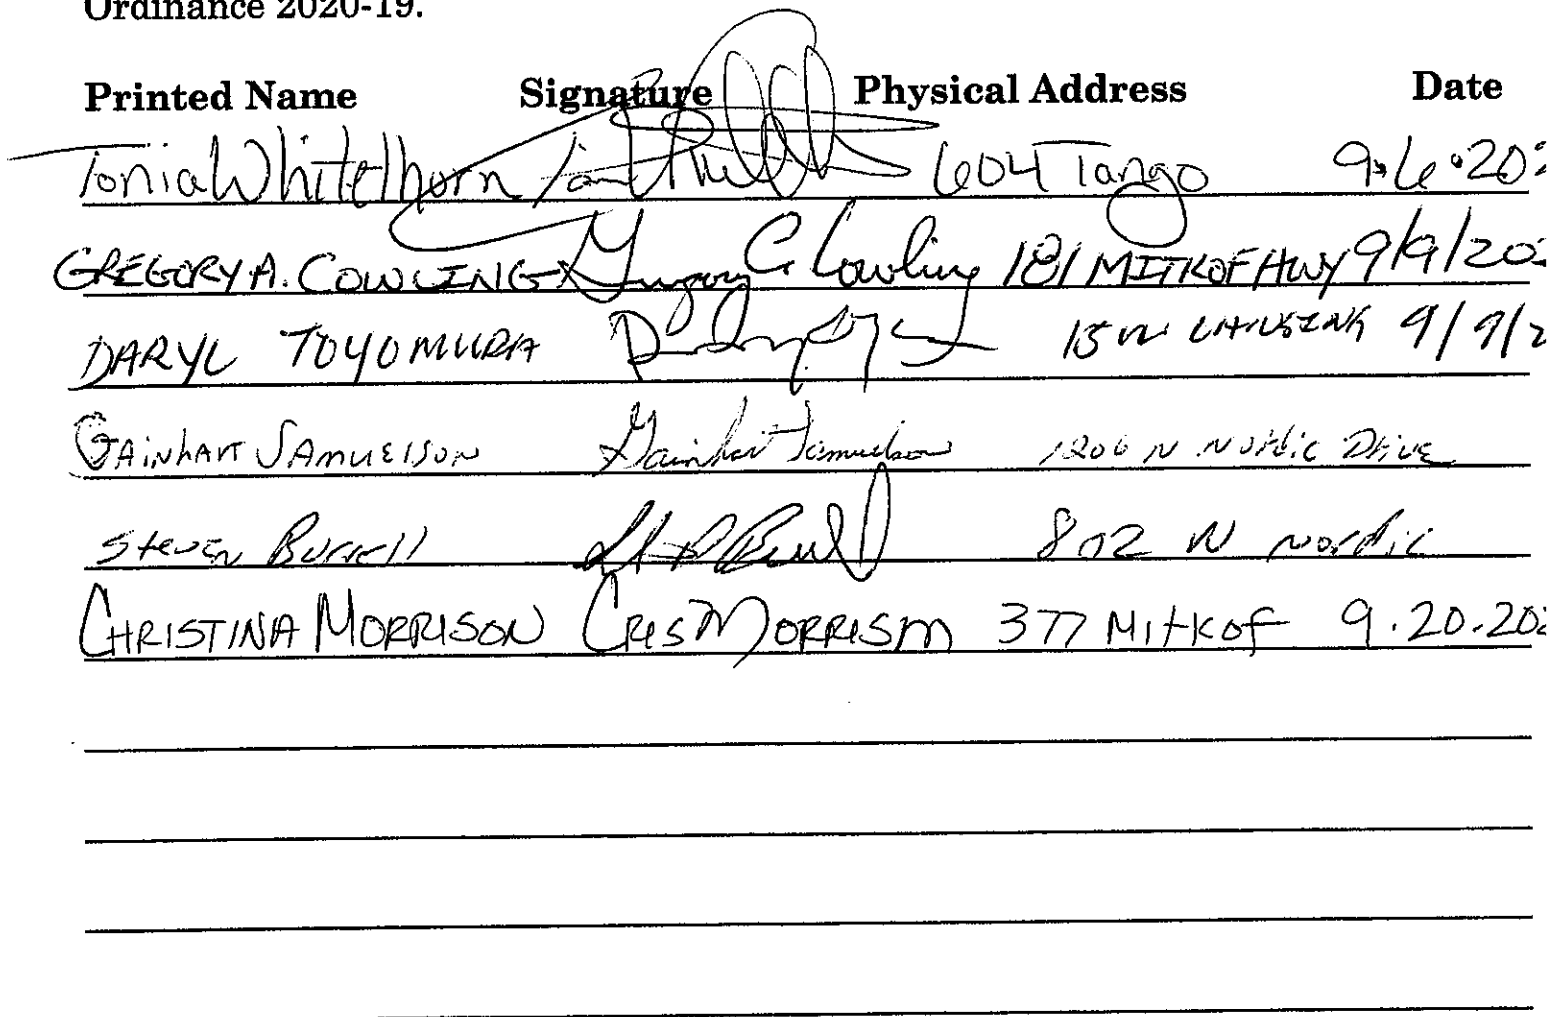 Ordinance 2020-19.
Printed Name Signature Physical Address Date
Tonia Whitethorn 604 Tango 9.6.202
GREGORY A. COWLING Gregory A Cowling 181 MITKOF HWY 9/9/202
DARYL TOYOMURA 15 W LANSING 9/9/2
GAinhart SAmuelson Gainhart Samuelson 1206 N Nordic Drive
Steven Burrell 802 N Nordic
CHRISTINA MORRISON CRIS MORRISON 377 MitKof 9.20.202